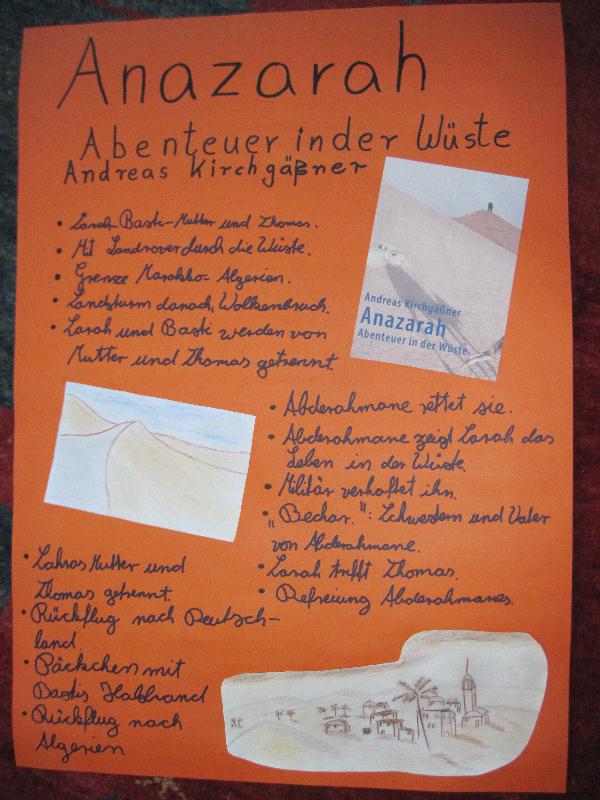 Anazarah
Abenteuer in der Wüste
Andreas Kirchgäßner
• Sarah Basti-Mutter und Thomas.
• Mit Landrover durch die Wüste.
• Grenze Marokko-Algerien.
• Sandsturm danach, Wolkenbruch.
• Sarah und Basti werden von
Mutter und Thomas getrennt.
Andreas Kirchgäßner
Anazarah
Abenteuer in der Wüste
• Abderahmane rettet sie.
• Abderahmane zeigt Sarah das
Leben in der Wüste.
• Militär verhaftet ihn.
• "Bechar.": Schwestern und Vater
von Abderahmane.
• Sarah trifft Thomas.
• Befreiung Abderahmanes.
• Sahras Mutter und
Thomas getrennt.
• Rückflug nach Deutsch-
land.
• Päckchen mit
Bastis Halsband
• Rückflug nach
Algerien